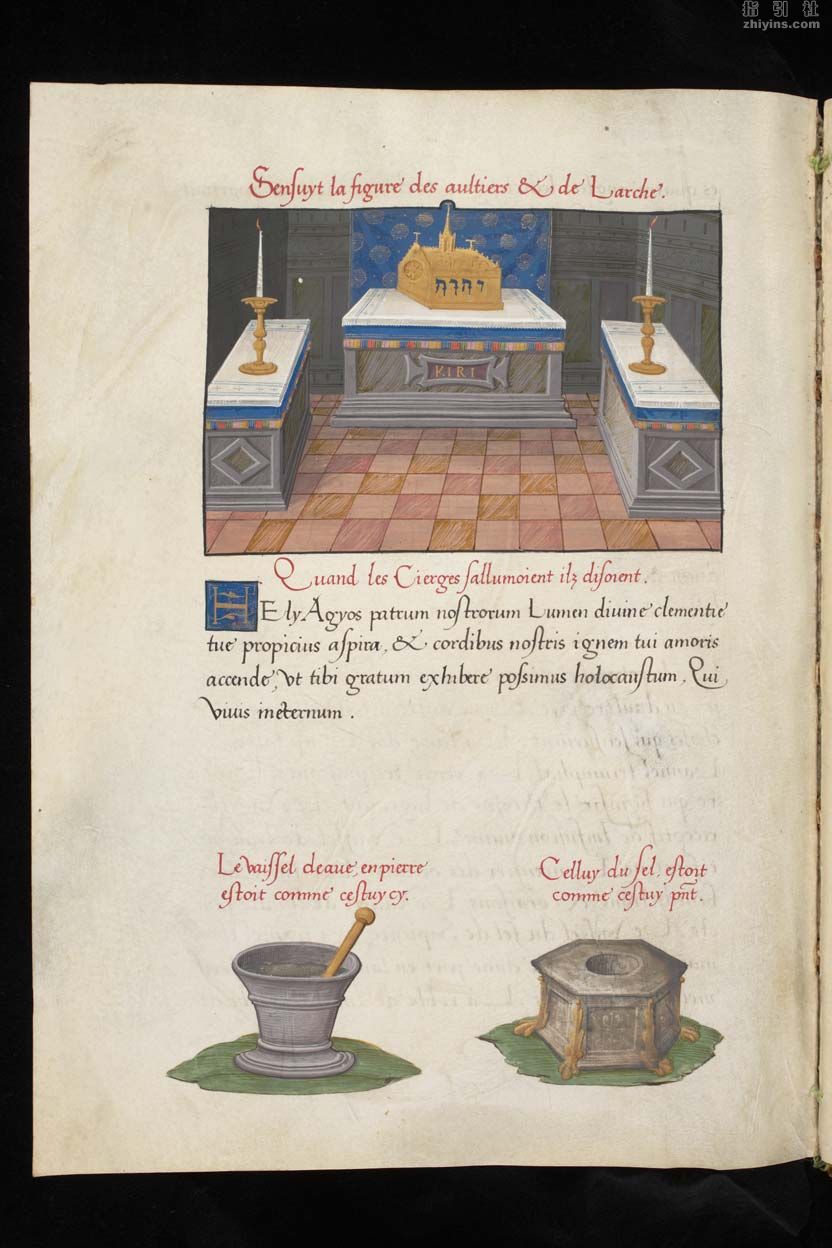 指引社
zhiyins.com
Sensuyt la figure des aultiers & de Larche.
יהוה
KIRI
Quand les Cierges sallumoient ilz disoient.
HEly Agyos patrum nostrorum Lumen diuine clementie
tue propicius aspira, & cordibus nostris ignem tui amoris
accende, Vt tibi gratum exhibere possimus holocaustum, Qui
Viuis ineternum.
Le vaissel deaue, en pierre
estoit comme cestuy cy.
Celluy du sel, estoit
comme cestuy pnt.